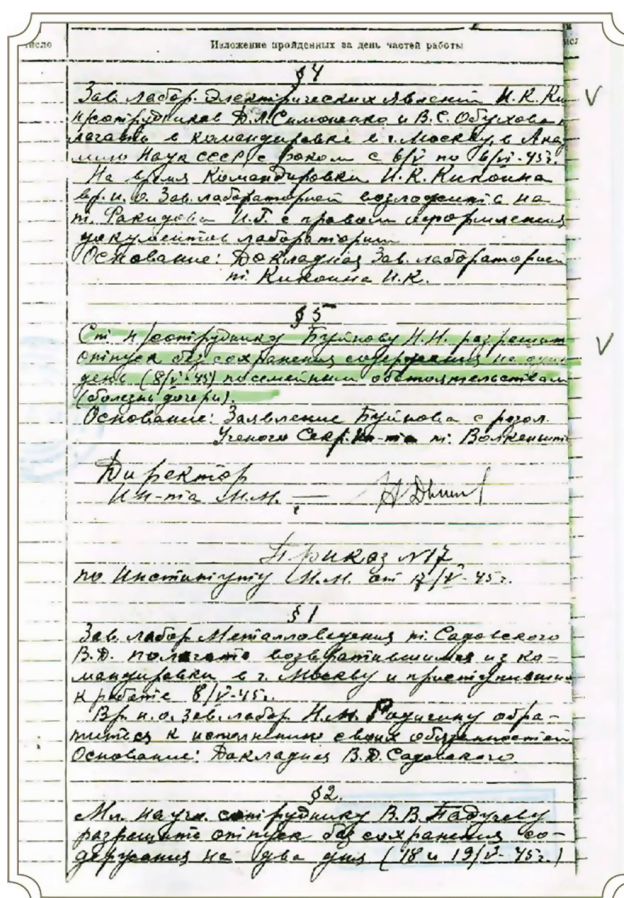 число
Изложение пройденных за день частей работы
§4
Зав. лабор. Электрических явлений И.К. Ки
н/сотрудников Д.Л. Симоненко и В.С. Обухова
лагать в командировке в г. Москву, в Ака
мию Наук СССР с роком с 6/V по 6/VI-45г.
На время командировки И.К. Кикоина
вр. и.о. Зав. лабораторией возложить на
т. Факидова И.Г. с правом оформления
документов лаборатории
Основание: Докладная Зав. лаборатории
т. Кикоина И.К.
§5
Ст. н/сотрудника Буйнову Н.Н. разрешит
отпуск без сохранения содержания на один
день (8/V-45) по семейным обстоятельствам
(болезнь дочери).
Основание: Заявление Буйнова с резол.
Ученого Секр. Ин-та т. Волкеншт
Директор
Ин-та М.М. —
Приказ №17
по Институту М.М. от 17/V-45г.
§1
Зав. лабор Металловедения т. Садовского
В.Д. полагать возвратившимся из ко-
мандировки в г. Москву и приступившим
к работе 8/V-45г.
Вр. и.о. зав. лабор Н.М. Родигину обра-
титься к исполнению своих обязанностей
Основание: Докладная В.Д. Садовского.
§2.
Мл. научн. сотруднику В.В. Падучеву
разрешить отпуск без сохранения со-
держания на два дня (18 и 19/V-45г.)